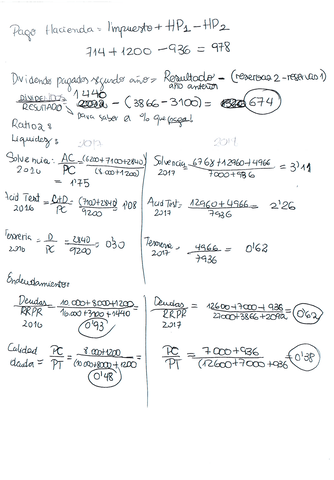 Pago Hacienda = Impuesto + HP1 - HP2
714 + 1200 - 936 = 978
Dividendo pagados segundo año = Resultado año anterior - (reservas 2 - reservas 1)
1440 - (3866 - 3100) = 674
DIVIDENDO
RESULTADO para saber el % que paga
Ratios:
Liquidez: 2017
Solvencia 2016 = AC/PC = (6200+7100+2840)/(8000+1200) = 1'75
Solvencia 2017 = 6768+12960+4966/7000+936 = 3'11
Acid Test 2016 = C+D/PC = (7100+2840)/9200 = 1'08
Acid Tst 2017 = 12960+4966/7936 = 2'26
Tesoreria 2016 = D/PC = 2840/9200 = 0'30
Tesoreria 2017 = 4966/7936 = 0'62
Endeudamiento:
Deudas/RRPR 2016 = 10.000+8000+1200/16000+3100+1440 = 0'93
Deudas/RRPR 2017 = 12600+7000+936/27000+3866+2092 = 0'62
Calidad deuda = PC/PT = 8000+1200/(10.000+8000+1200 = 0'48
PC/PT = 7000+936/(12600+7000+936 = 0'38